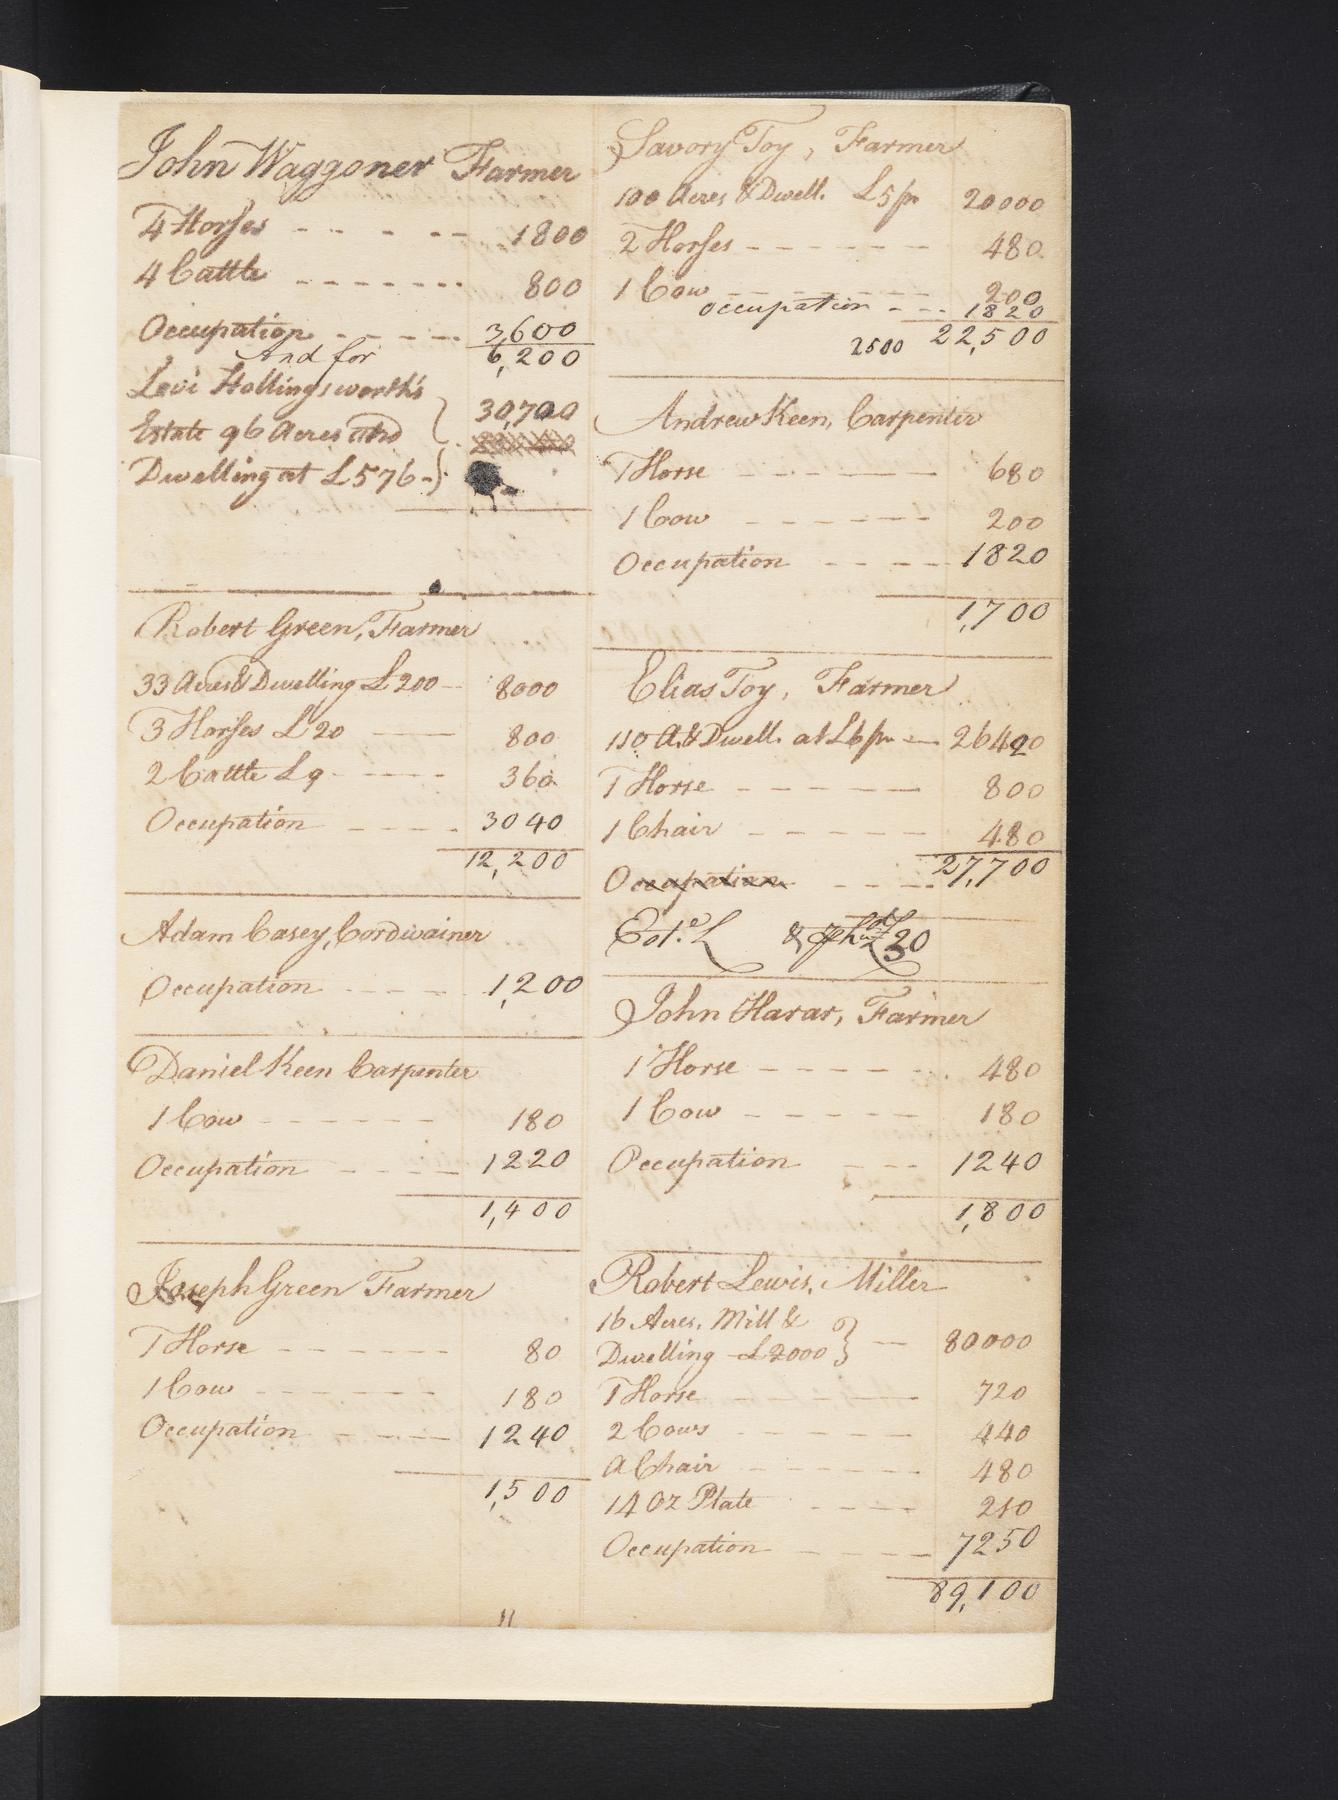 John Waggoner Farmer
4 Horses - - - - - 1800
4 Cattle - - - - - - - 800
Occupation - - - - 3,600
And for 6,200
Levi Hollingsworth's
Estate 96 Acres and 30,700
Dwelling at £576 -
Robert Green, Farmer
33 Acres & Dwelling £200 - 8000
3 Horses £20 - - 800
2 Cattle £9 - - - - 360
Occupation - - - - 3040
12,200
Adam Casey, Cordwainer
Occupation - - - - 1,200
Daniel Keen Carpenter
1 Cow - - - - - - 180
Occupation - - - - 1220
1,400
Joseph Green Farmer
1 Horse - - - - - - 80
1 Cow - - - - - - 180
Occupation - - - - 1240
1,500
11
Savory Toy, Farmer
100 Acres & Dwell. £5 pr 20000
2 Horses - - - - - - 480
1 Cow - - - - - - 200
Occupation - - - 1820
2500 22,500
Andrew Keen, Carpenter
1 Horse - - - - - 680
1 Cow - - - - - - 200
Occupation - - - - 1820
1,700
Elias Toy, Farmer
110 A. & Dwell. at £6 pr - 26400
1 Horse - - - - - - 800
1 Chair - - - - - - 480
27,700
Occupation - - - -
& 20
John Harar, Farmer
1 Horse - - - - - - 480
1 Cow - - - - - - 180
Occupation - - - 1240
1,800
Robert Lewis, Miller
16 Acres, Mill &
Dwelling £2000 } - 80000
1 Horse - - - - 720
2 Cows - - - - - - 440
A Chair - - - - - 480
14 Oz Plate - - - - 210
Occupation - - - - 7250
89,100